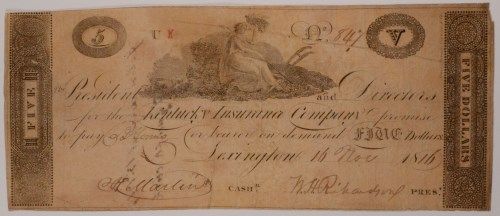 5 U Nº. 847 V
FIVE
FIVE DOLLARS
The President and Directors
for the Kentucky Insurance Company promise
to pay or bearer on demand FIVE Dollars
Lexington 16 Nov 1816
CASHR. W. H. Richardson PREST.